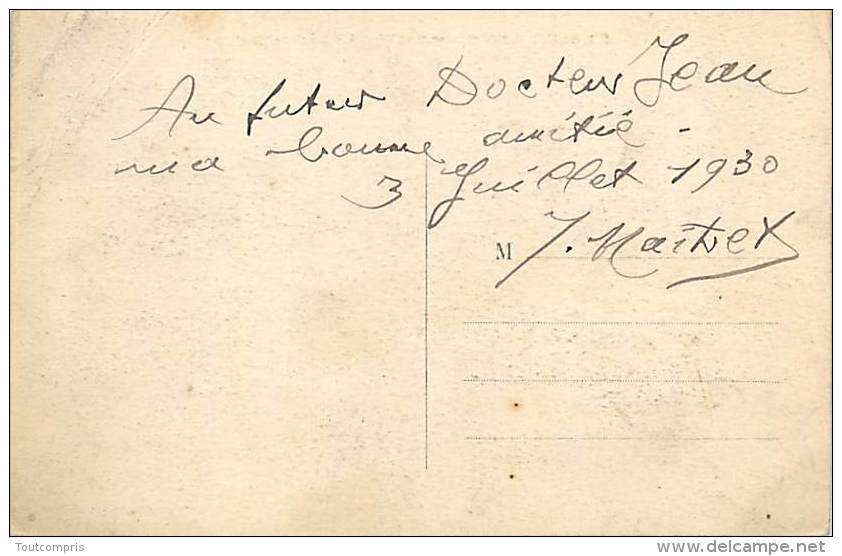 Au futur Docteur Jean
ma bonne amitié -
3 Juillet 1930
M J. Maitret
Toutcompris
www.delcampe.net